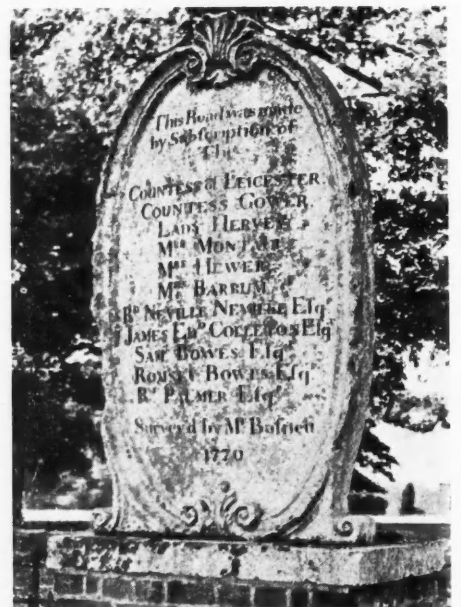 This Road was made
by Subscription of
The
COUNTESS of LEICESTER
COUNTESS GOWER
LADY HERVEY
Mrs
Mrs HEWER
Mrs BARRUM
Rd NEVILLE NEVILLE Esqr
JAMES EDwd COLLETON Esqr
SAM BOWES Esqr
ROMSEY BOWES Esqr
Rd PALMER Esqr
Survey'd by Mr
1770